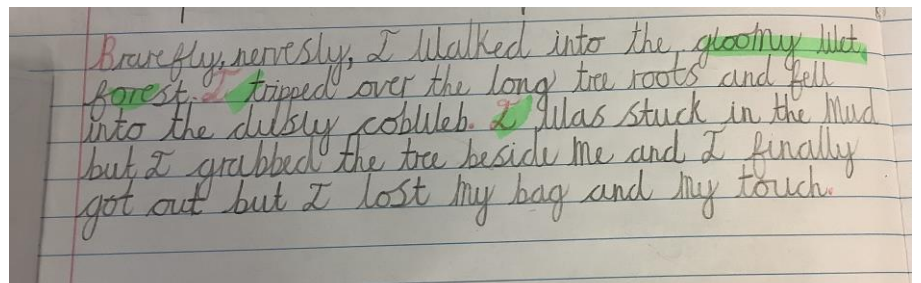 Bravefly, nervesly, I walked into the gloomy wet
forest. I tripped over the long tree roots and fell
into the dusly cobweb. I was stuck in the mud
but I grabbed the tree beside me and I finally
got out but I lost my bag and my touch.